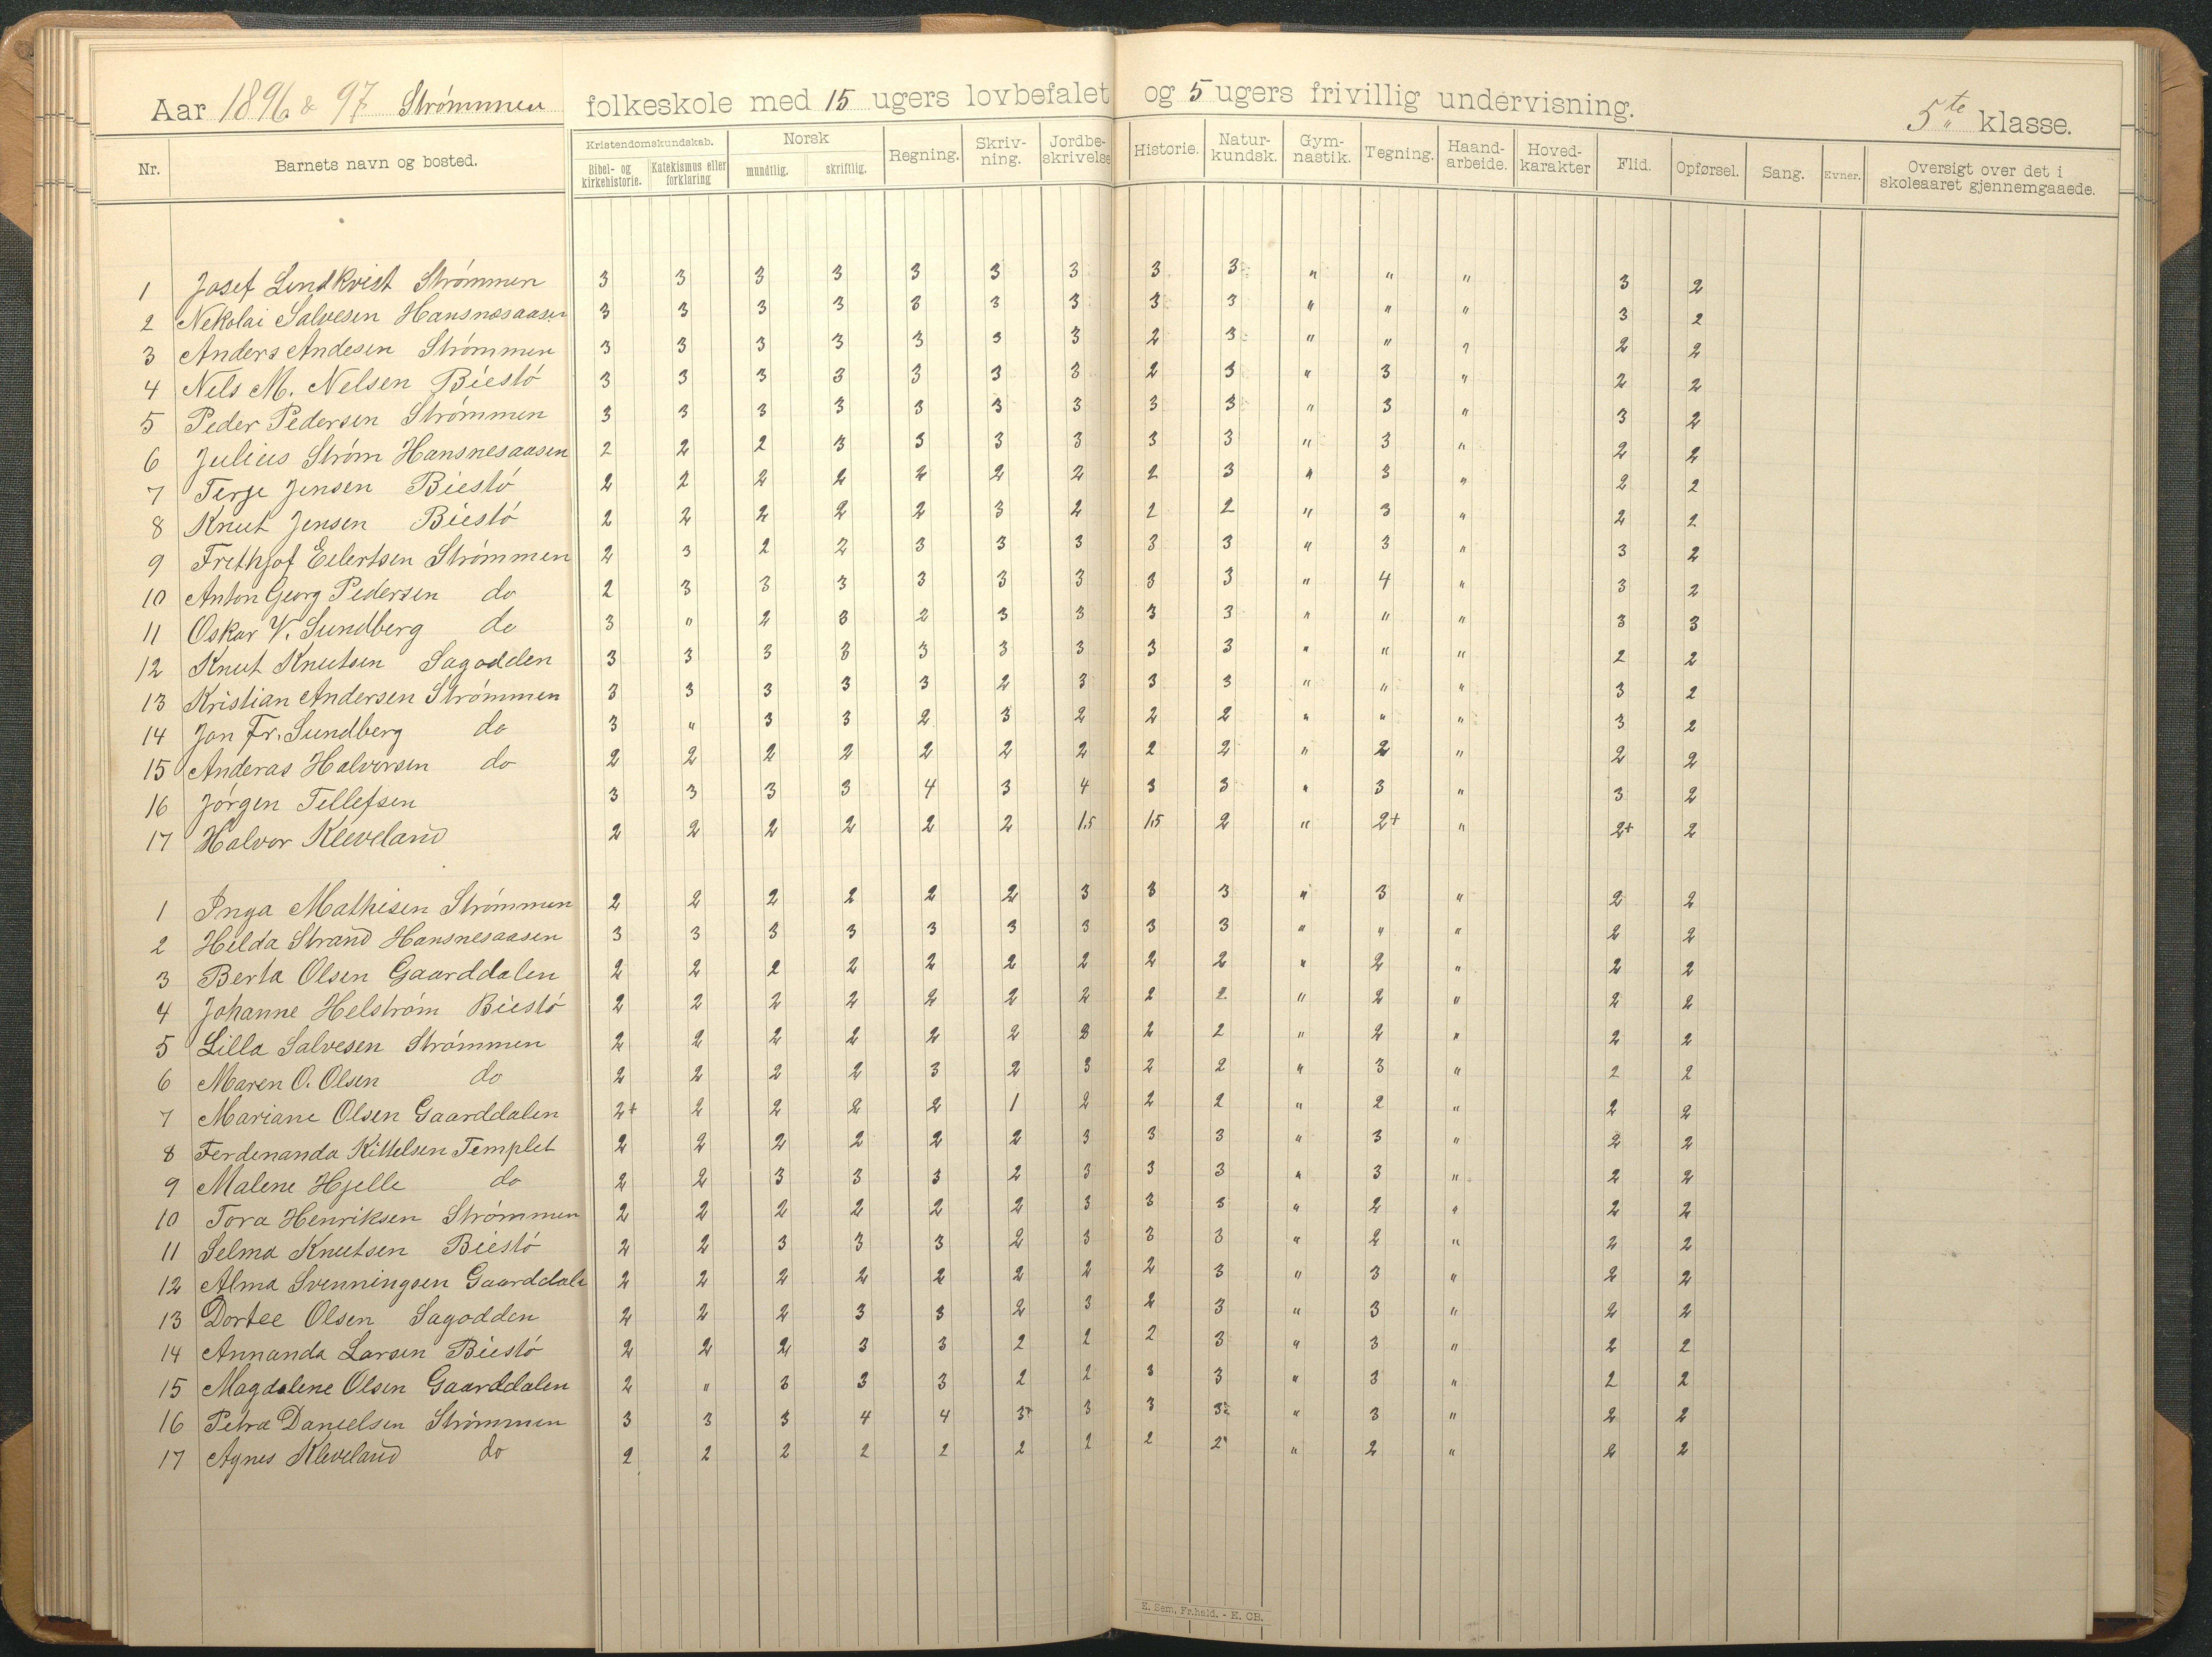 Aar 1896 & 97 Strømmen folkeskole med 15 ugers lovbefalet og 5 ugers frivillig undervisning. 5te klasse.
Nr. Barnets navn og bosted. Kristendomskundskab. Bibel- og kirkehistorie. Katekismus eller forklaring Norsk mundtlig. skriftlig. Regning. Skriv-ning. Jordbe-skrivelse Historie. Natur-kundsk. Gym-nastik. Tegning. Haand-arbeide. Hoved-karakter Flid. Opførsel. Sang. Evner. Oversigt over det i skoleaaret gjennemgaaede.
1 Josef Lindkvist Strømmen 3 3 3 3 3 3 3 3 3 " " " 3 2
2 Nekolai Salvesen Hansnesaasen 3 3 3 3 3 3 3 3 3 " " " 3 2
3 Anders Andesen Strømmen 3 3 3 3 3 3 3 2 3 " " " 2 2
4 Nels M. Nelsen Biestö 3 3 3 3 3 3 3 2 3 " 3 " 2 2
5 Peder Pedersen Strømmen 3 3 3 3 3 3 3 3 3 " 3 " 3 2
6 Julius Strøm Hansnesaasen 2 2 2 3 3 3 3 3 3 " 3 " 2 2
7 Terje Jensen Biestö 2 2 2 2 2 2 2 2 3 " 3 " 2 2
8 Knut Jensen Biestö 2 2 2 2 2 3 2 2 2 " 3 " 2 2
9 Frithjof Eilertsen Strømmen 2 3 2 2 3 3 3 3 3 " 3 " 3 2
10 Anton Georg Pedersen do 2 3 3 3 3 3 3 3 3 " 4 " 3 2
11 Oskar V. Sundberg do 3 " 2 3 2 3 3 3 3 " " " 3 3
12 Knut Knutsen Sagodden 3 3 3 3 3 3 3 3 3 " " " 2 2
13 Kristian Andersen Strømmen 3 3 3 3 3 2 3 3 3 " " " 3 2
14 Jon Fr. Sundberg do 3 " 3 3 2 3 2 2 2 " " " 3 2
15 Anderas Halvorsen do 2 2 2 2 2 2 2 2 2 " 2 " 2 2
16 Jörgen Tellefsen 3 3 3 3 4 3 4 3 3 " 3 " 3 2
17 Halvor Kleveland 2 2 2 2 2 2 1.5 1.5 2 " 2+ " 2+ 2
1 Inga Mathisen Strømmen 2 2 2 2 2 2 3 3 3 " 3 " 2 2
2 Hilda Strand Hansnesaasen 3 3 3 3 3 3 3 3 3 " " " 2 2
3 Berta Olsen Gaarddalen 2 2 2 2 2 2 2 2 2 " 2 " 2 2
4 Johanne Helström Biestö 2 2 2 2 2 2 2 2 2 " 2 " 2 2
5 Lilla Salvesen Strømmen 2 2 2 2 2 2 3 2 2 " 2 " 2 2
6 Maren O. Olsen do 2 2 2 2 3 2 3 2 2 " 3 " 2 2
7 Mariane Olsen Gaarddalen 2+ 2 2 2 2 1 2 2 2 " 2 " 2 2
8 Ferdenanda Kittelsen Templet 2 2 2 2 2 2 3 3 3 " 3 " 2 2
9 Malene Hjelle do 2 2 3 3 3 2 3 3 3 " 3 " 2 2
10 Tora Henriksen Strømmen 2 2 2 2 2 2 3 3 3 " 2 " 2 2
11 Selma Knutsen Biestö 2 2 3 3 3 2 3 3 3 " 2 " 2 2
12 Alma Svenningsen Gaarddale 2 2 2 2 2 2 2 2 3 " 3 " 2 2
13 Dortee Olsen Sagodden 2 2 2 3 3 2 3 2 3 " 3 " 2 2
14 Annanda Larsen Biestö 2 2 2 3 3 2 2 2 3 " 3 " 2 2
15 Magdalene Olsen Gaarddalen 2 " 3 3 3 2 2 3 3 " 3 " 2 2
16 Petra Danielsen Strømmen 3 3 3 4 4 3+ 3 3 3 " 3 " 2 2
17 Agnes Kleveland do 2 2 2 2 2 2 2 2 2 " 2 " 2 2
E. Sem, Fr.hald. - E. CB.